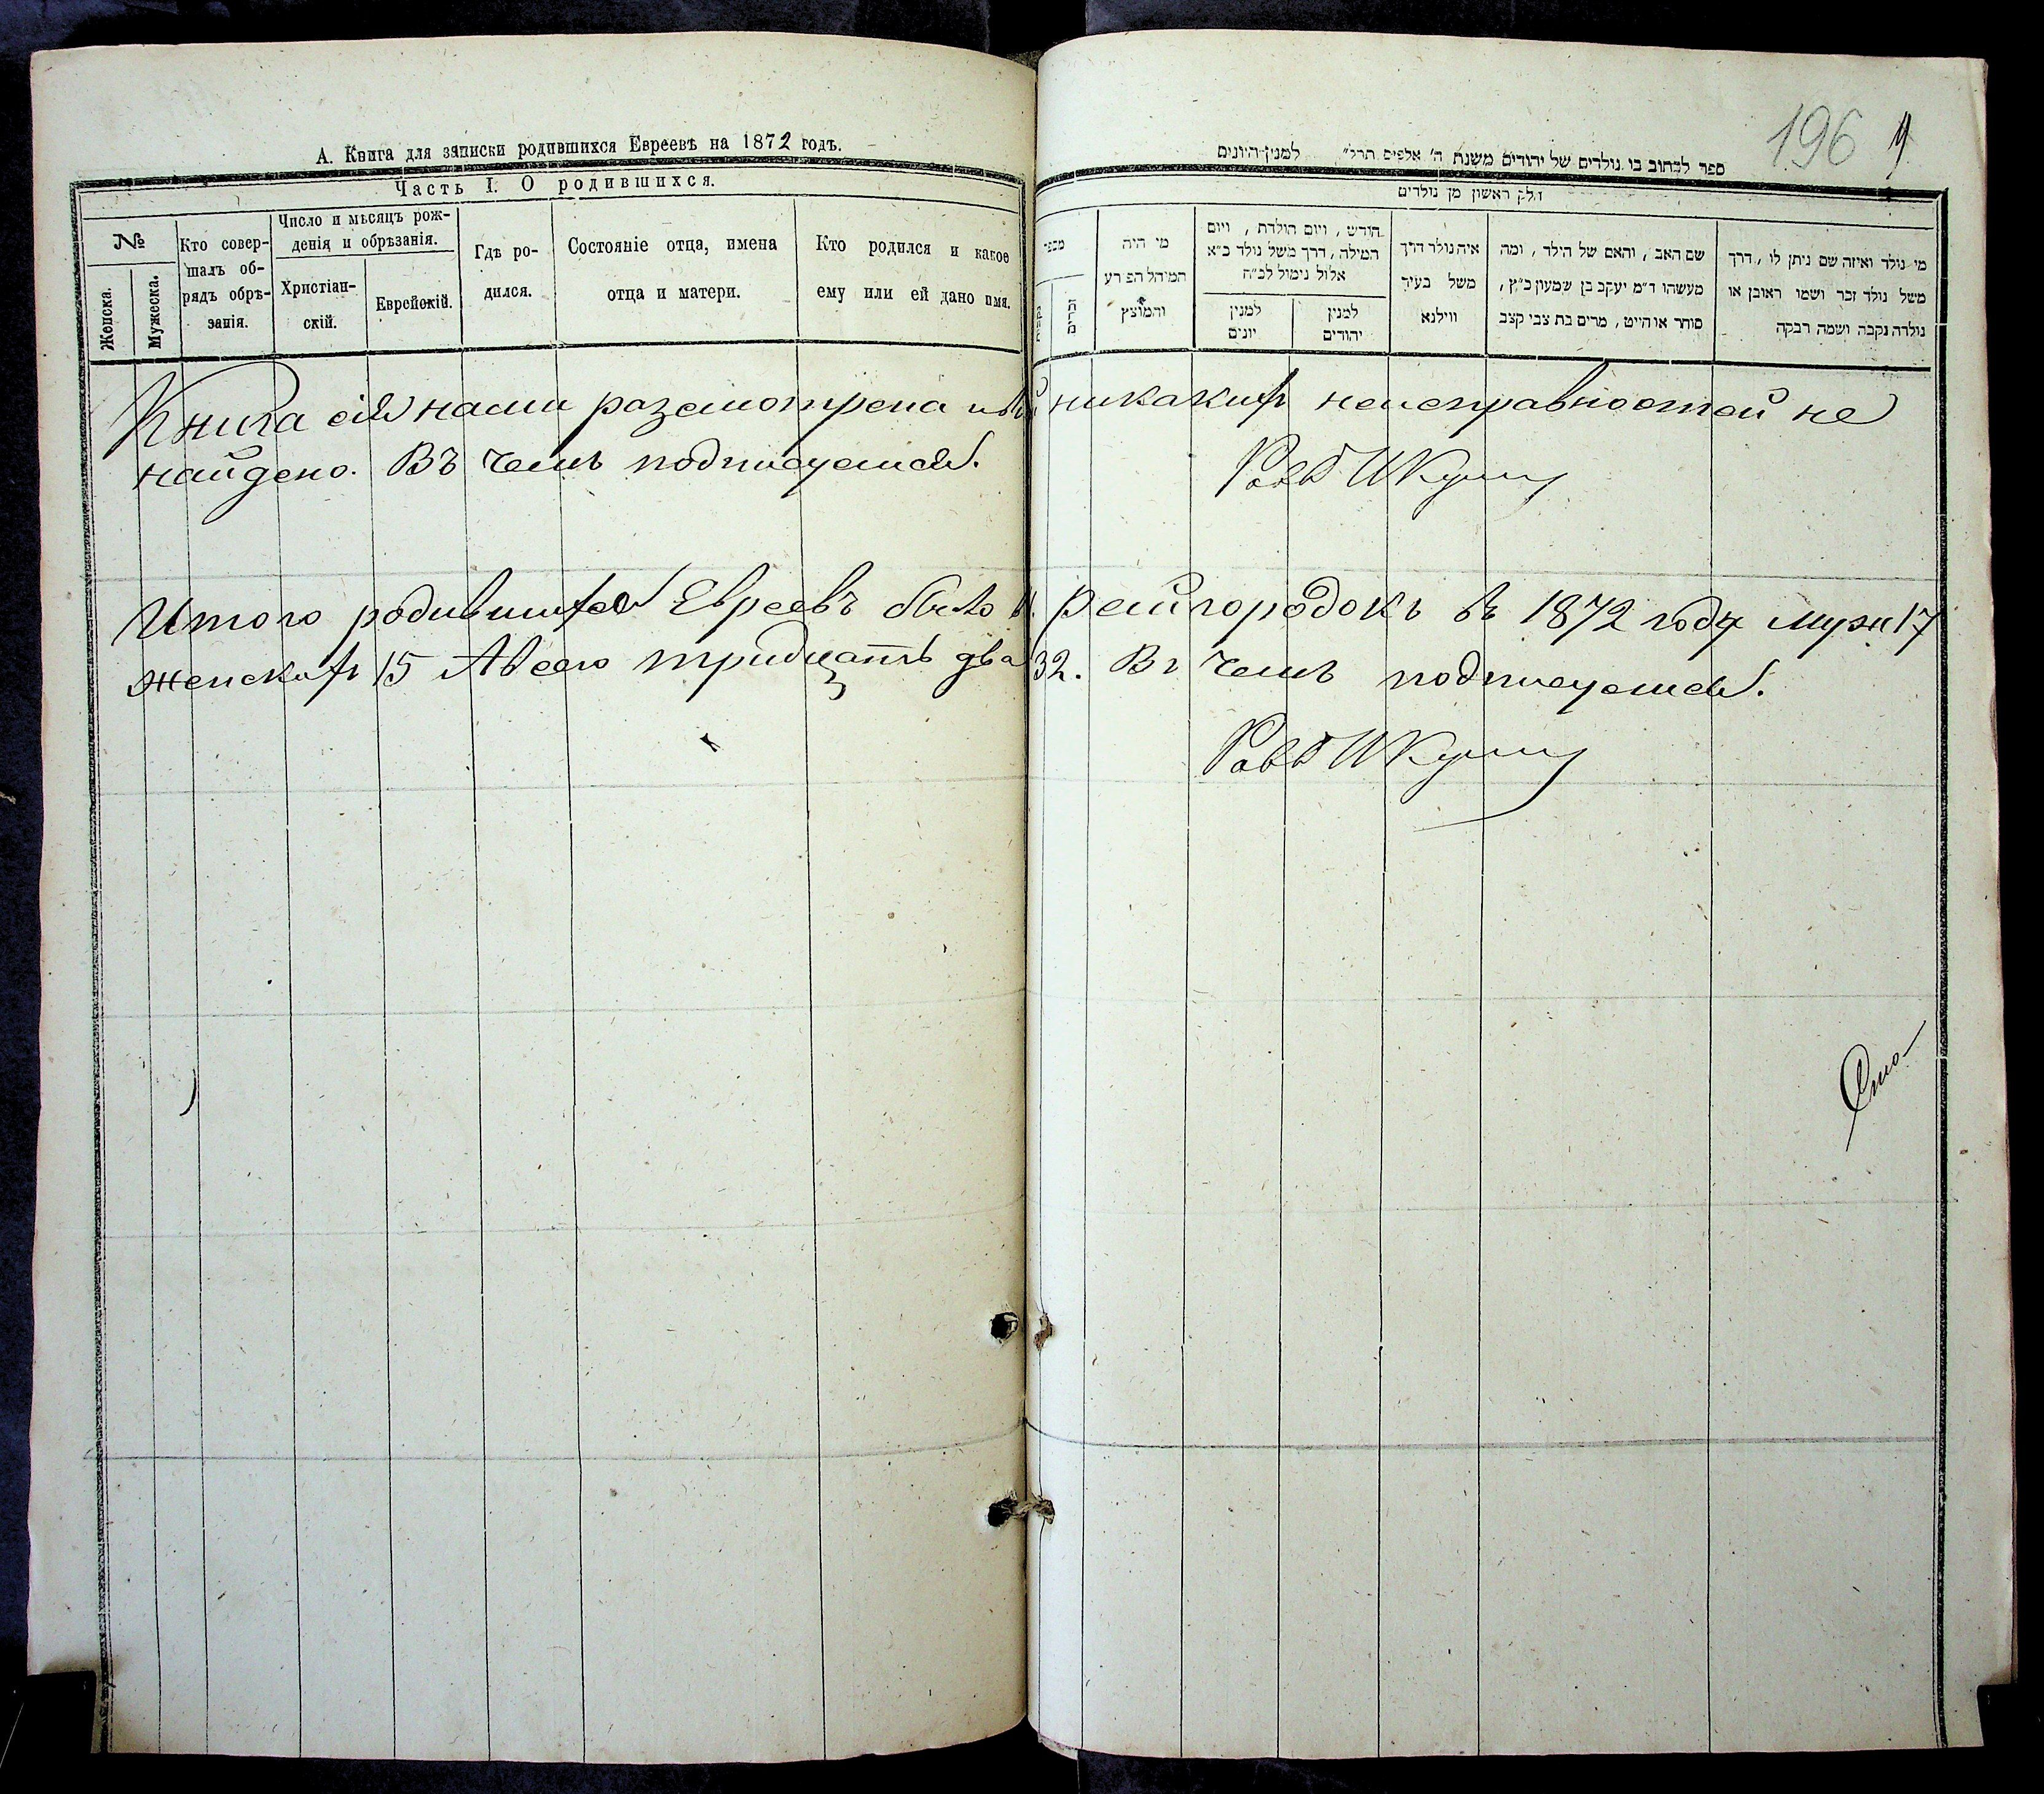 А. Книга для записки родившихся Евреевъ на 1872 годъ.
Часть I. О родившихся.
№
Женска.
Мужеска.
Кто совер-
шалъ об-
рядъ обрѣ-
занія.
Число и мѣсяцъ рож-
денія и обрѣзанія.
Христіан-
скій.
Еврейскій.
Гдѣ ро-
дился.
Состояніе отца, имена
отца и матери.
Кто родился и какое
ему или ей дано имя.
196
9
ספר לכתוב בו נולדים של יהודים משנת ה' אלפים תרל" למנין היונים
חלק ראשון מן נולדים
מספר
נקבות
זכרים
מי היה
המוהל הפורע
והמוצץ
חודש , ויום הולדת , ויום
המילה , דרך משל נולד כ"א
אלול נימול לכ"ח
למנין
יונים
למנין
יהודים
איה נולד דרך
משל בעיר
ווילנא
שם האב , והאם של הילד , ומה
מעשהו ד"מ יעקב בן שמעון כ"ץ ,
סוחר או חייט , מרים בת צבי קצב
מי נולד ואיזה שם ניתן לו , דרך
משל נולד זכר ושמו ראובן או
נולדה נקבה ושמה רבקה
Книга сія нами разсмотрена и въ ней никакихъ неисправностей не
найдено. Въ чемъ подписуемся.
Равъ Ш
Итого родившихся Евреевъ было въ м. Райгородокъ въ 1872 году Муж 17
женскихъ 15 А всего тридцать два 32. Въ чемъ подписуемся.
Равъ Ш